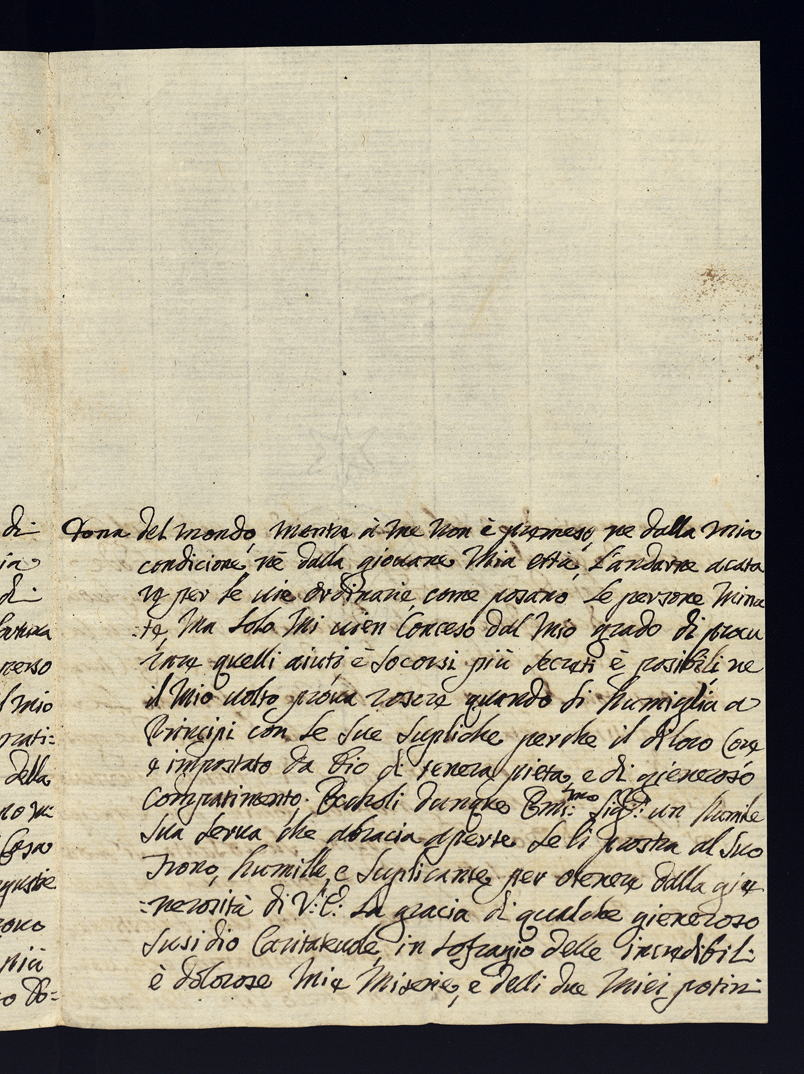 di
dona del mondo, mentre à me non è promeso, ne dalla mia
condicione, nè dalla giovane mia ettà, l'andarne acata
re per le vie ordinarie, come posano le persone mina
te, ma solo mi vien conceso dal mio grado di procu
rare quelli aiuti è socorsi più secreti è posibili ne
il mio volto prova rosore quando si humiglia a
Principi con le sue supliche perche il di loro Core
è impostato da Dio di tenera pieta, e di gieneroso
Compatimento. dunque Emi:mo Sig:r un humile
sua serva che abracia aperte se li prostra al suo
Trono, humille, e suplicante, per otenere dalla gie
=nerosità di V:E: la gracia di qualche gieneroso
susidio Caritatevole, in sofragio delle incredibili
è dolorose mie miserie, e delli due miei potin